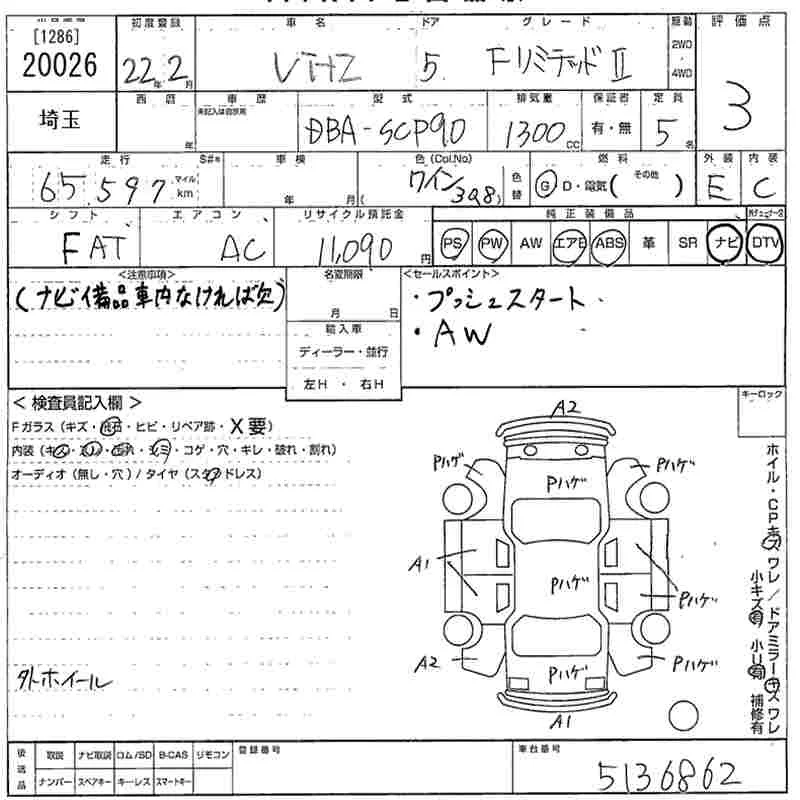 [1286] 初度登録 車名 ドア グレード 駆動 評価点
20026 22年2月 VTHZ 5. FリミテッドⅡ 2WD・4WD 3
埼玉 西暦 年 車歴 未記入は自家用 型式 排気量 保証書 定員
DBA-SCP90 1300cc 有・無 5名
走行 S#有 車検 色(Col.No) 燃料 外装 内装
65,597 マイル km 年 月 ワイン(3Q8) 色替 G D・電気( その他 ) E C
シフト エアコン リサイクル預託金 純正装備品
FAT AC 11,090円 PS PW AW エアB ABS 革 SR ナビ DTV
<注意事項> 名変期限 <セールスポイント>
(ナビ備品車内なければ欠) 月 日 ・プッシュスタート
輸入車 ・AW
ディーラー・並行
左H・右H
<検査員記入欄> キーロック
Fガラス(キズ・飛石・ヒビ・リペア跡・X要)
内装(キズ・スレ・汚れ・シミ・コゲ・穴・キレ・破れ・割れ)
オーディオ(無し・穴)/タイヤ(スタッドレス)
A2
Pハゲ Pハゲ Pハゲ
A1 Pハゲ Pハゲ
A2 Pハゲ Pハゲ
A1
外ホイール
ホイル・CPキズワレ/ドアミラーキズワレ
小キズ有 小U有 補修有
後送品 取説 ナビ取説 ロム/SD B-CAS リモコン 登録番号 車台番号
ナンバー スペアキー キーレス スマートキー 5136862